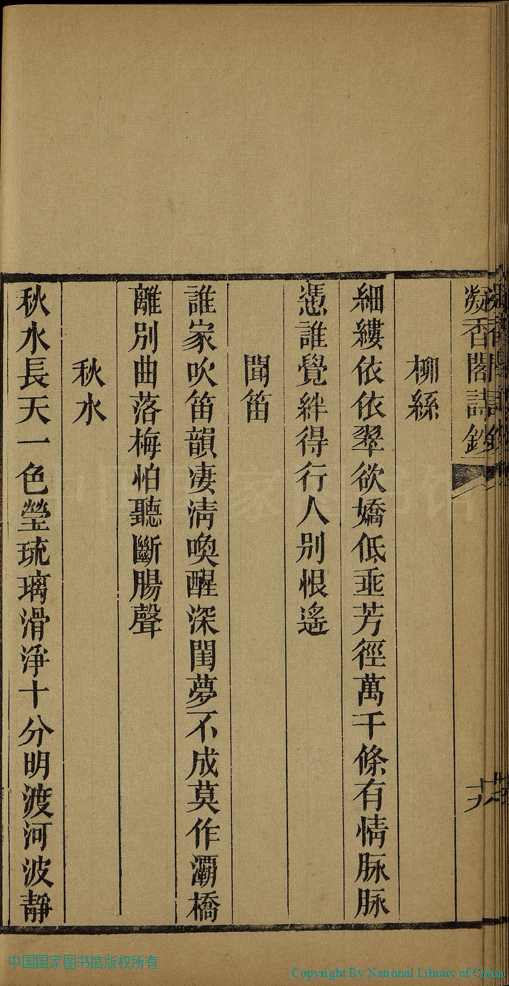 凝香閣詩鈔
六
柳絲
細縷依依翠欲嬌低垂芳徑萬千條有情脉脉
憑誰覺絆得行人别恨遙
聞笛
誰家吹笛韻凄清喚醒深閨夢不成莫作灞橋
離别曲落梅怕聽斷腸聲
秋水
秋水長天一色瑩琉璃滑淨十分明渡河波靜
中国国家图书馆版权所有
Copyright By National Library of China